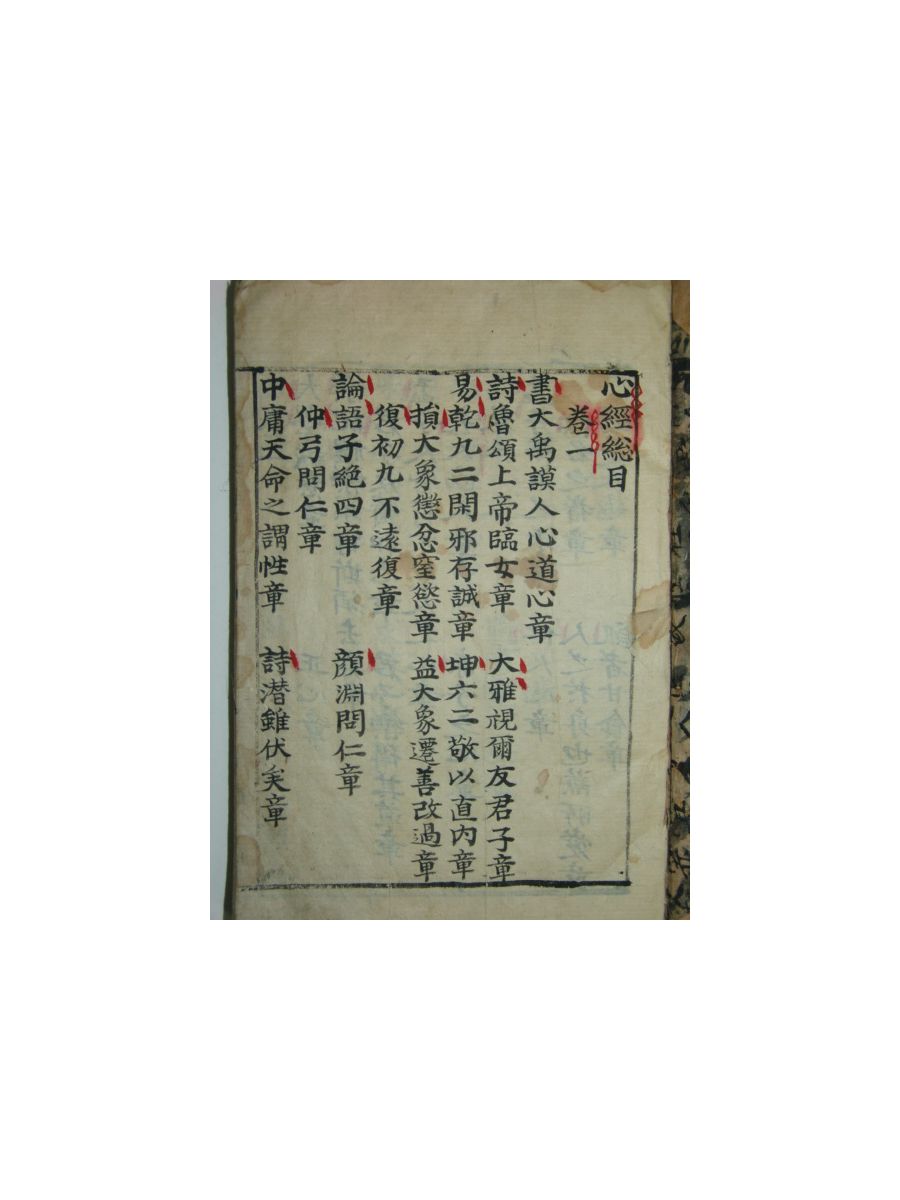 心經総目
卷一
書大禹謨人心道心章
詩魯頌上帝臨女章 大雅視爾友君子章
易乾九二閑邪存誠章 坤六二敬以直内章
損大象懲忿窒慾章 益大象遷善改過章
復初九不遠復章
論語子絶四章 顔淵問仁章
仲弓問仁章
中庸天命之謂性章 詩潜雖伏矣章